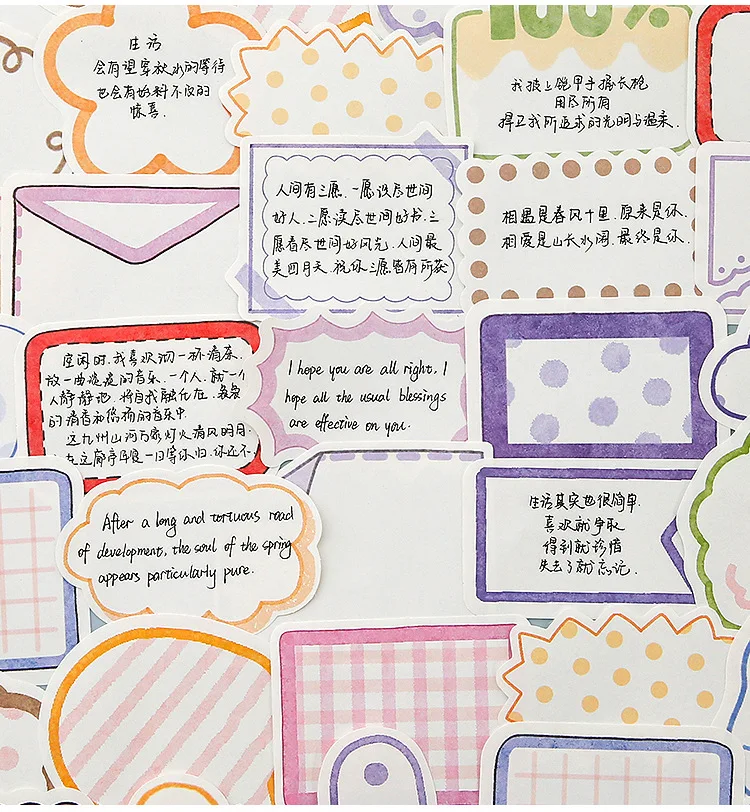 100%
生活
会有望穿秋水的等待
也会有始料不及的
惊喜.
我披上铠甲手握长枪
用尽所有
捍卫我所追求的光明与温柔.
人间有三愿.一愿识尽世间
好人.二愿读尽世间好书.三
愿看尽世间好风光.人间最
美四月天.祝你三愿皆有所获
相遇是春风十里.原来是你.
相爱是山长水阔.最终是你.
空闲时.我喜欢沏一杯清茶.
放一曲淡淡的音乐.一个人.就一个
人静静地.将自我融化在.袅袅
的清香和悠扬的音乐中.
这九州山河万家灯火清风明月.
I hope you are all right. I
hope all the usual blessings
are effective on you.
After a long and tortuous road
of development, the soul of the spring
appears particularly pure.
生活其实也很简单.
喜欢就争取
得到就珍惜
失去了就忘记.